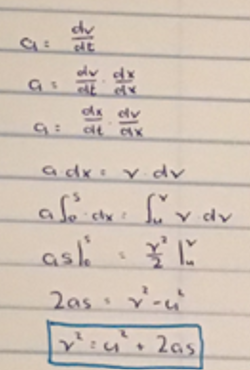 a = dv/dt
a = dv/dt · dx/dx
a = dx/dt · dv/dx
a dx = v · dv
a∫₀ˢ · dx = ∫ᵤᵛ v · dv
as|₀ˢ = v²/2 |ᵤᵛ
2as = v² - u²
v² = u² + 2as